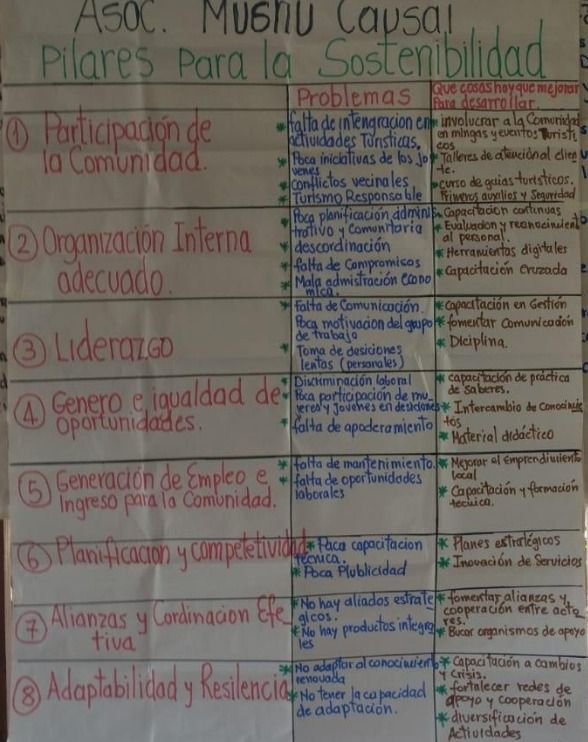 Asoc. Mushu Causai
Pilares Para la Sostenibilidad
Problemas
Que cosas hay que mejorar
Para desarrollar.
① Participación de
la Comunidad.
* falta de intengracion en
actividades Turisticas.
* Poca iniciativas de los jo-
venes
* conflictos vecinales
* Turismo Responsable
* involucrar a la Comunidad
en mingas y eventos Turisti
cos
* Talleres de atencional clien
te.
* curso de guias turisticos.
Primeros auxilios y Seguridad
② Organización Interna
adecuado.
* Poca planificación adminis
trativo y Comunitaria
* descordinación
* falta de Compromisos
* Mala admistración econo
mica.
* Capacitación continuas
* Evaluacion y reconocimient
al personal.
* Herramientas digitales
* Capacitación Cruzada
③ Liderazgo
* falta de Comunicación.
Poca motivacion del grupo
de trabajo
* Toma de desiciones
lentas (personales)
* Capacitación en Gestión
* fomentar Comunicación
* Diciplina.
④ Genero e igualdad de
oportunidades.
* Discriminación laboral
* Poca participación de mu-
jeres y Jovenes en desiciones
* falta de apoderamiento
* capacitación de práctica
de Saberes.
* Intercambio de Conocimien
tos
* Material didáctico
⑤ Generación de Empleo e
Ingreso para la Comunidad.
* falta de mantenimiento.
* falta de oportunidades
laborales
* Mejorar el Emprendimiento
local
* Capacitación y formación
tecnica.
⑥ Planificacion y competetividad
* Paca capacitacion
técnica.
* Poca Plublicidad
* Planes estratégicos
* Inovación de Servicios
⑦ Alianzas y Cordinacion Efe_
tiva
* No hay aliados estrate
gicos.
* No hay productos integra
les
* fomentar alianzas y
cooperación entre acto
res.
* Bucar organismos de apoyo
⑧ Adaptabilidad y Resilencia
* No adaptar al conocimiento
renovada
* No tener la capacidad
de adaptación.
* Capacitación a cambios
y Crisis.
* fortalecer redes de
apoyo y cooperación
* diversificación de
Actividades